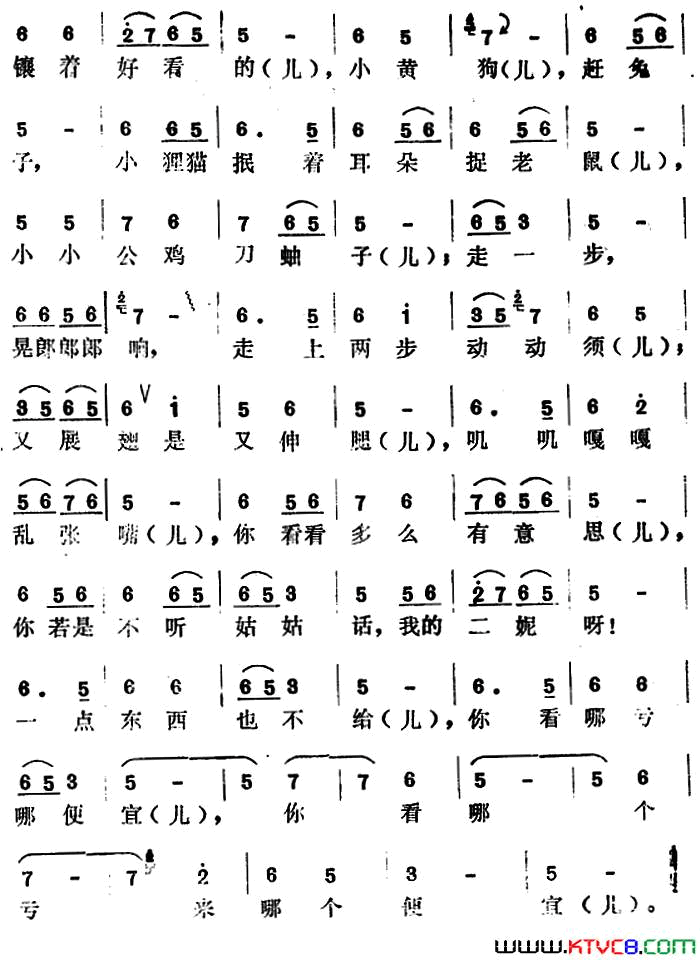 6 6 | 2̇ 7 6 5 | 5 - | 6 5 | 7 - | 6 5 6
镶 着 好 看 的(儿), 小 黄 狗(儿), 赶 兔
5 - | 6 6 5 | 6 . 5 | 6 5 6 | 6 5 6 | 5 - |
子, 小 狸猫 抿 着 耳 朵 捉 老 鼠(儿),
5 5 | 7 6 | 7 6 5 | 5 - | 6 5 3 | 5 - |
小 小 公 鸡 刀 蚰 子(儿); 走 一 步,
6 6 5 6 | 7 - | 6 . 5 | 6 i̇ | 3 5 7 | 6 5 |
晃郎郎郎 响, 走 上 两 步 动 动 须(儿);
3 5 6 5 | 6 ∨ i̇ | 5 6 | 5 - | 6 . 5 | 6 2̇ |
又 展 翅 是 又 伸 腿(儿), 叽 叽 嘎 嘎
5 6 7 6 | 5 - | 6 5 6 | 7 6 | 7 6 5 6 | 5 - |
乱 张 嘴(儿), 你 看看 多 么 有 意 思(儿),
6 5 6 | 6 6 5 | 6 5 3 | 5 5 6 | 2̇ 7 6 5 | 5 - |
你 若是 不 听 姑 姑 话, 我的 二 妮 呀!
6 . 5 | 6 6 | 6 5 3 | 5 - | 6 . 5 | 6 6 |
一 点 东 西 也 不 给(儿), 你 看 哪 亏
6 5 3 | 5 - | 5 7 | 7 6 | 5 - | 5 6 |
哪 便 宜(儿), 你 看 哪 个
7 - 7 | 2̇ | 6 5 | 3 - | 5 - |
亏 来 哪 个 便 宜(儿)。
WWW.KTVC8.COM